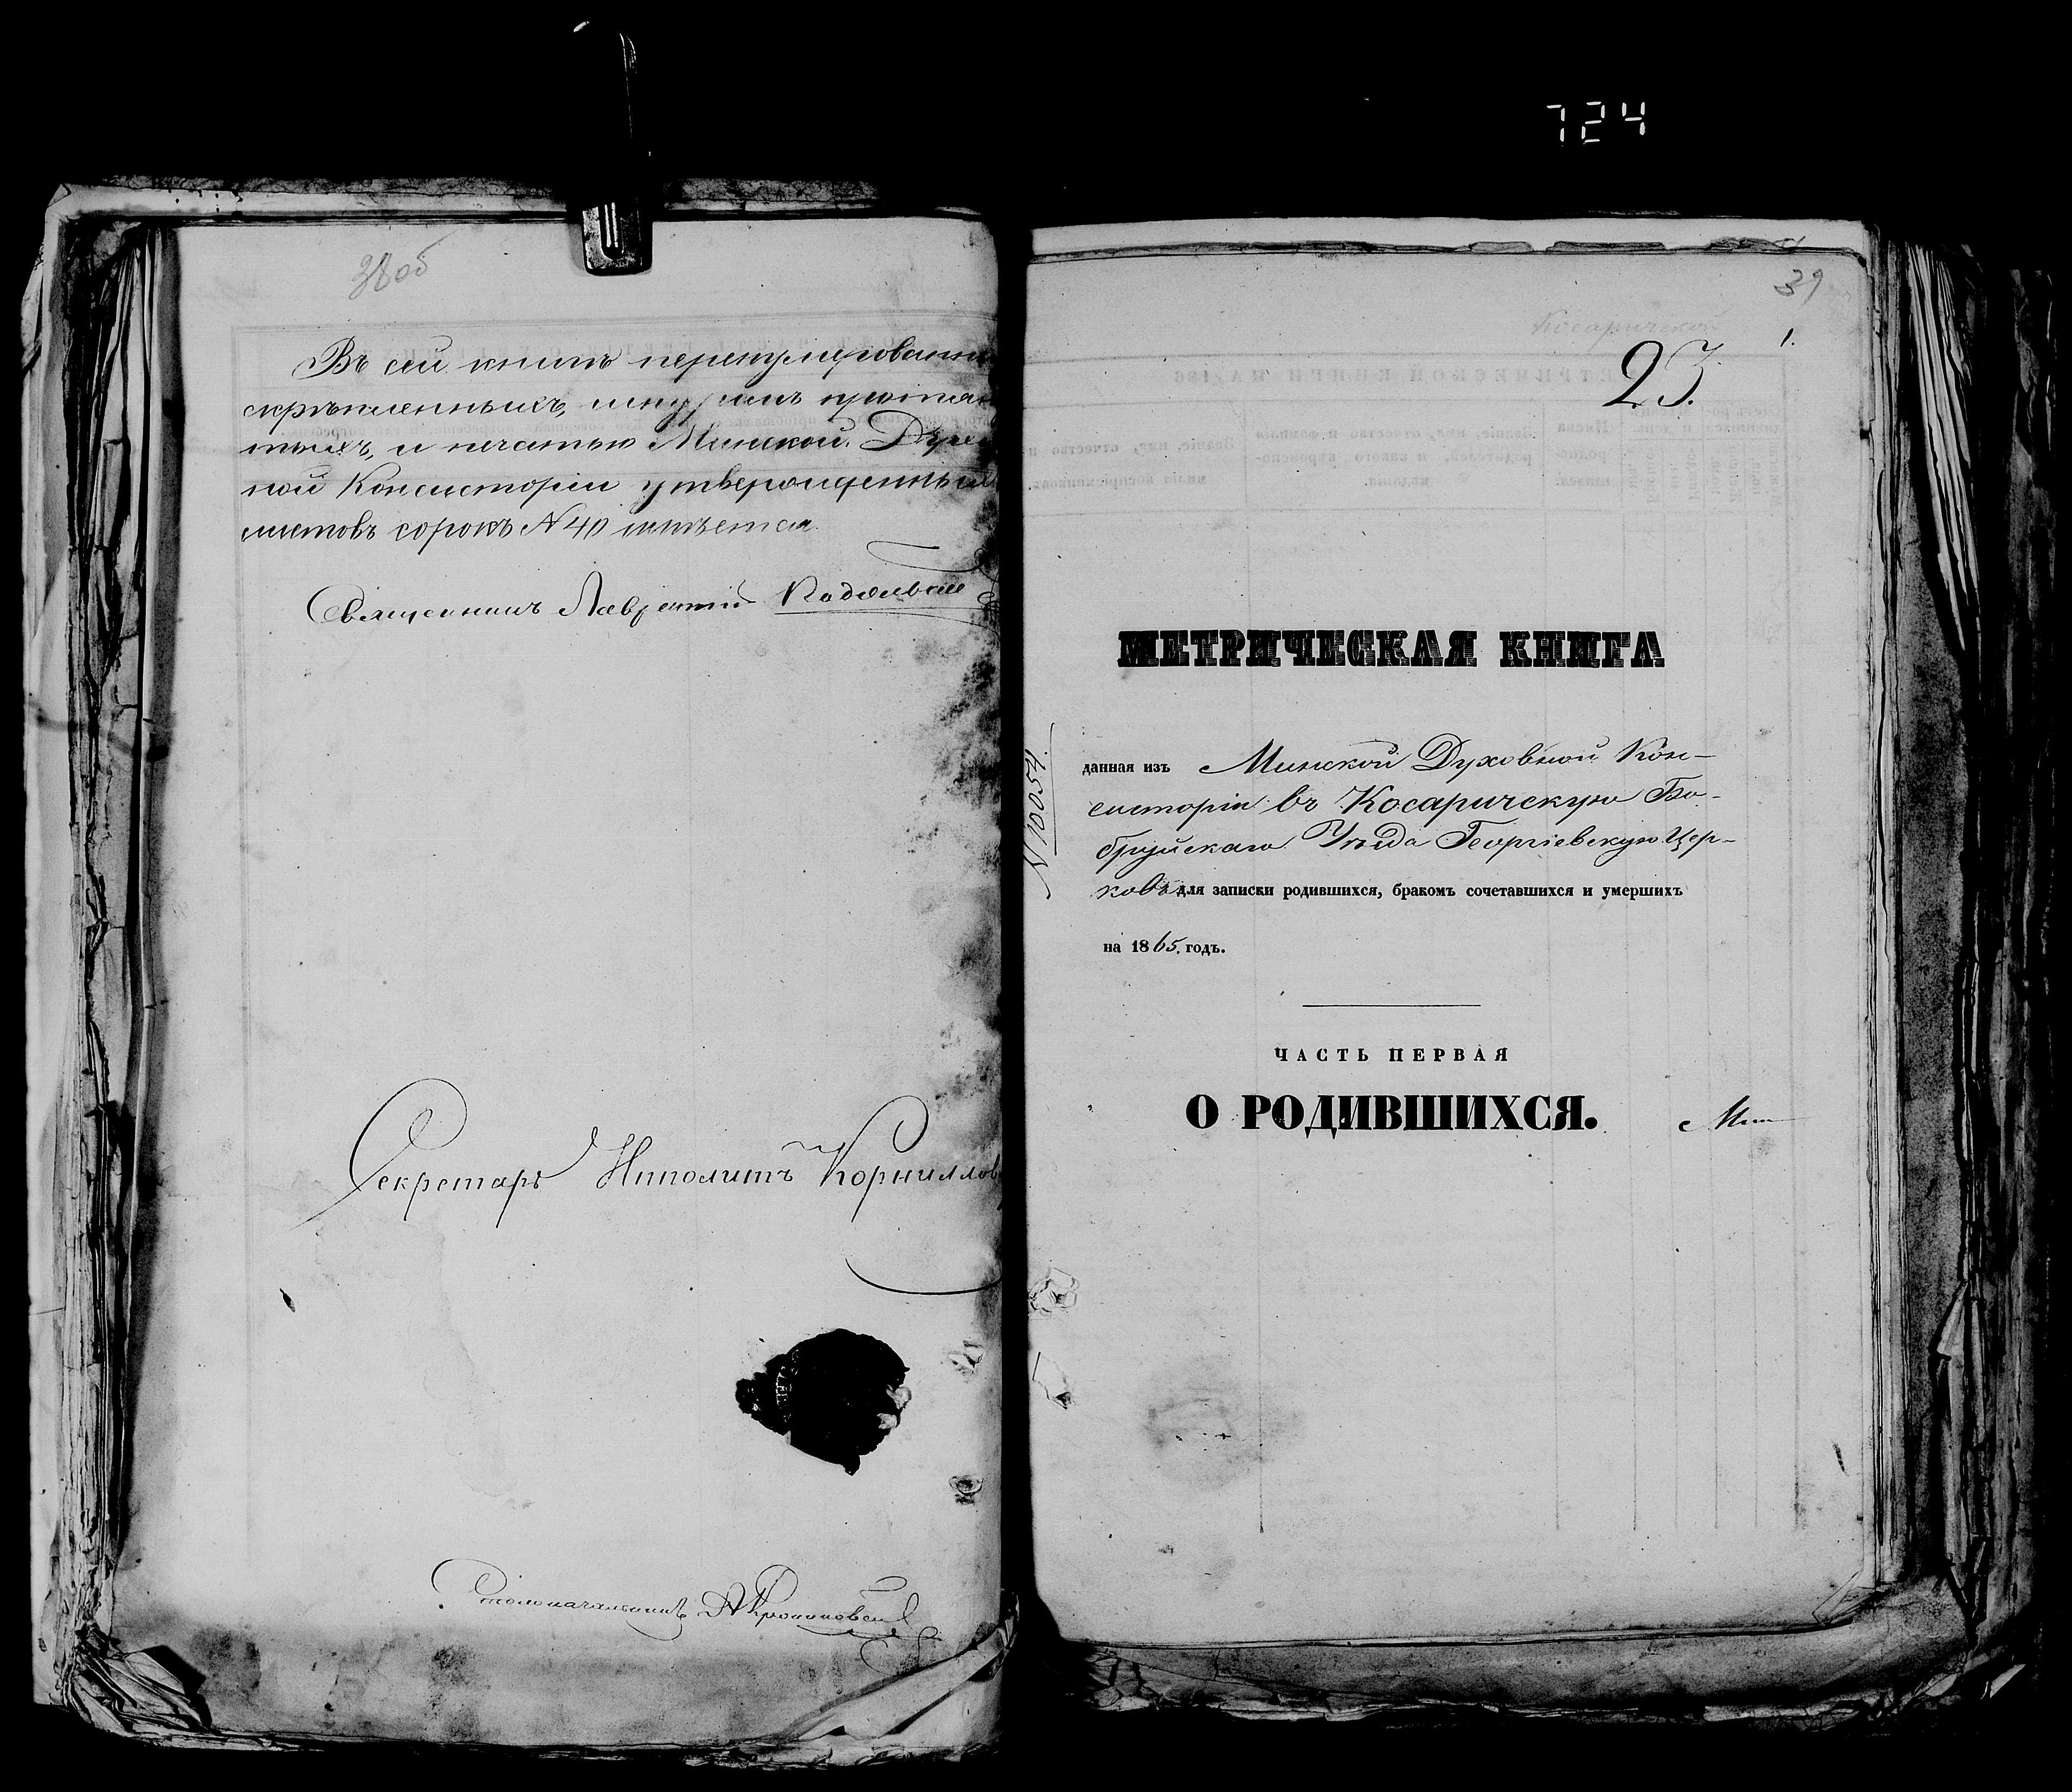 724
38об
Въ сей книгѣ перенумерованны
скрѣпленныхъ, шнуромъ
и печатью Минской Духов
ной Консисторіи утвержденныхъ
листовъ сорокъ №40 имѣется.
Священникъ Лаврентій
Секретарь Ипполитъ Корниллов
Столоначальникъ
39
1.
Косаричской
23.
МЕТРИЧЕСКАЯ КНИГА
№10054.
данная изъ Минской Духовной Кон-
систоріи въ Косаричскую Бо-
бруйскаго Уѣзда Георгіевскую Цер-
ковь для записки родившихся, бракомъ сочетавшихся и умершихъ
на 1865. годъ.
ЧАСТЬ ПЕРВАЯ
О РОДИВШИХСЯ.